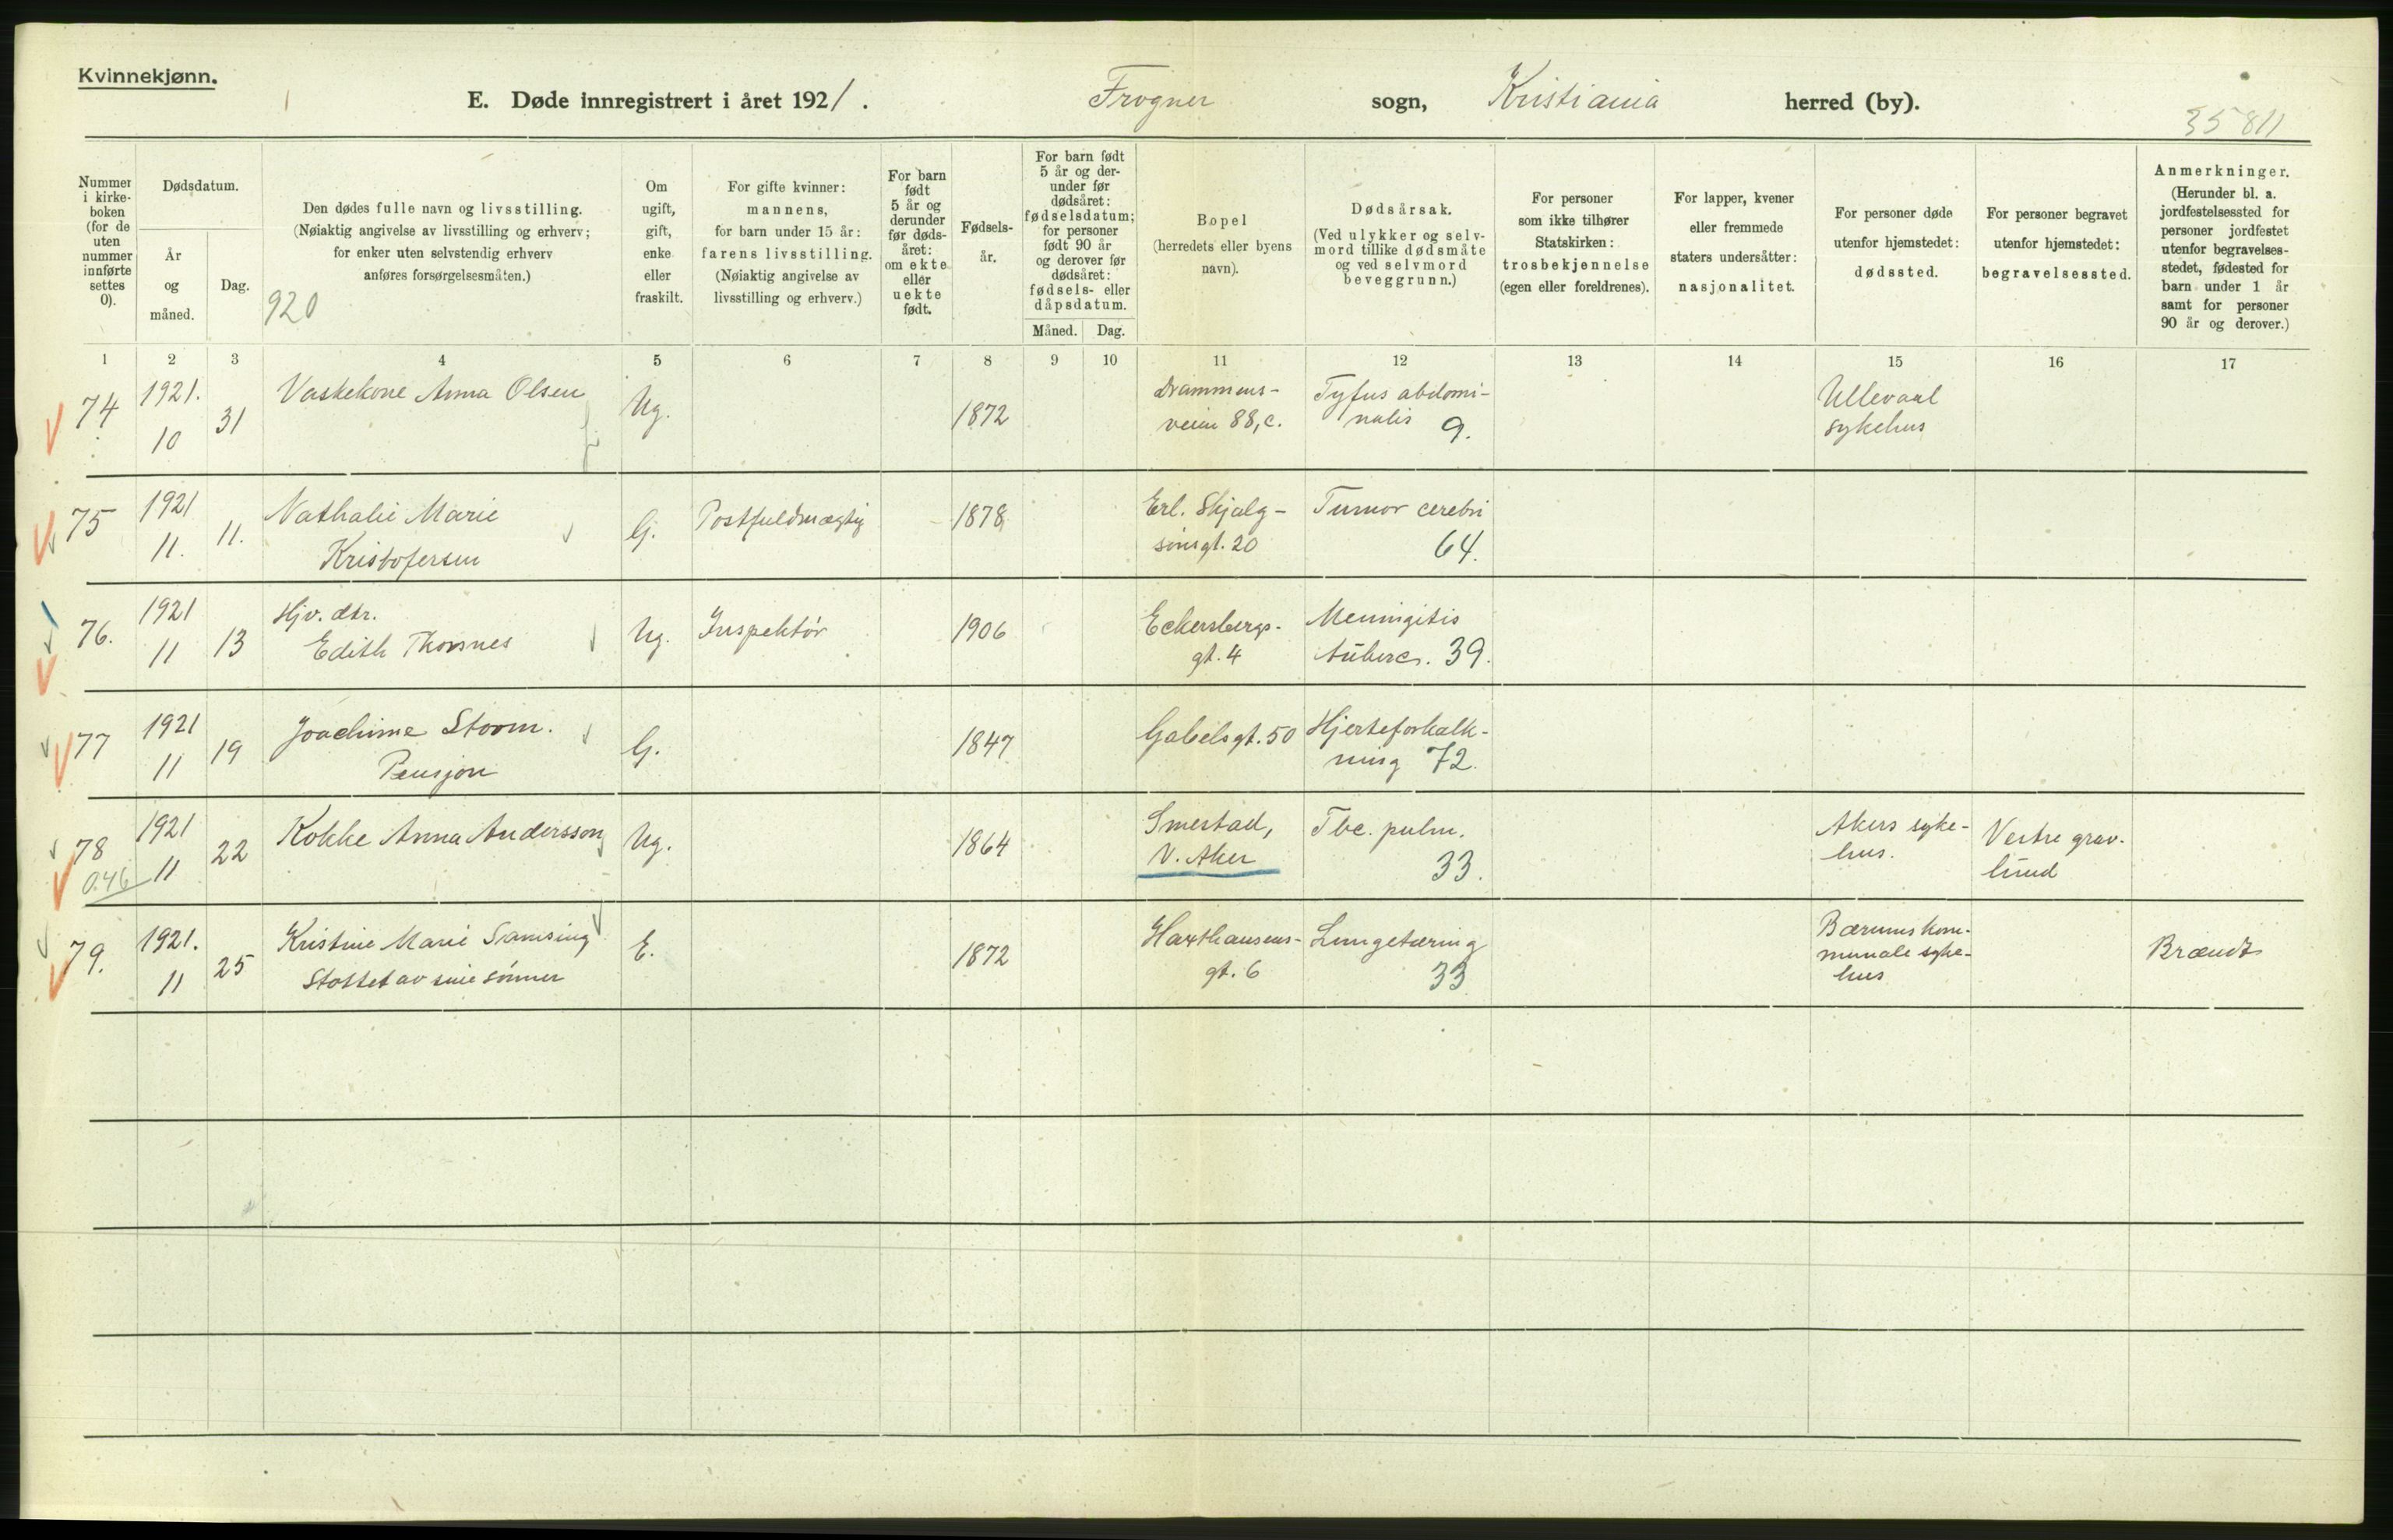 Kvinnekjønn.
E. Døde innregistrert i året 1921. Frogner sogn, Kristiania herred (by).
35811
Nummer i kirke- boken (for de uten nummer innførte settes 0).
Dødsdatum.
År og måned.
Dag.
Den dødes fulle navn og livsstilling.
(Nøiaktig angivelse av livsstilling og erhverv;
for enker uten selvstendig erhverv
anføres forsørgelsesmåten.)
920
Om ugift, gift, enke eller fraskilt.
For gifte kvinner:
mannens,
for barn under 15 år:
farens livsstilling.
(Nøiaktig angivelse av
livsstilling og erhverv.)
For barn født 5 år og derunder før døds- året: om ekte eller uekte født.
Fødsels- år.
For barn født 5 år og der- under før dødsåret: fødselsdatum; for personer født 90 år og derover før dødsåret: fødsels- eller dåpsdatum.
Måned. Dag.
Bopel
(herredets eller byens
navn).
Dødsårsak.
(Ved ulykker og selv-
mord tillike dødsmåte
og ved selvmord
beveggrunn.)
For personer
som ikke tilhører
Statskirken:
trosbekjennelse
(egen eller foreldrenes).
For lapper, kvener
eller fremmede
staters undersåtter:
nasjonalitet.
For personer døde
utenfor hjemstedet:
dødssted.
For personer begravet
utenfor hjemstedet:
begravelsessted.
Anmerkninger.
(Herunder bl. a.
jordfestelsessted for
personer jordfestet
utenfor begravelses-
stedet, fødested for
barn under 1 år
samt for personer
90 år og derover.)
1 2 3 4 5 6 7 8 9 10 11 12 13 14 15 16 17
74 1921. 10 31 Vaskekone Anna Olsen Ug. 1872 Drammens- veien 88, c. Tyfus abdomi- nalis 9. Ullevaal sykehus
75 1921 11. 11. Nathalie Marie Kristofersen G. Postfuldmægtig 1878 Erl. Skjalg- sønsgt. 20 Tumor cerebri 64.
76. 1921 11 13 Hjv. dtr. Edith Thorsnes Ug. Inspektør 1906 Eckersbergs- gt. 4 Meningitis tuberc. 39.
77 1921 11 19 Joachime Storm. Pensjon G. 1847 Gabelsgt. 50 Hjerteforkalk- ning 72.
78 0.46 1921 11 22 Kokke Anna Andersson Ug. 1864 Smestad, V. Aker Tbc. pulm. 33. Akers syke- hus. Vestre grav- lund
79. 1921. 11 25 Kristine Marie Samsing Støttet av sine sønner E. 1872 Haxthausens- gt. 6 Lungetæring 33 Bærums kom- munale syke- hus Brændt